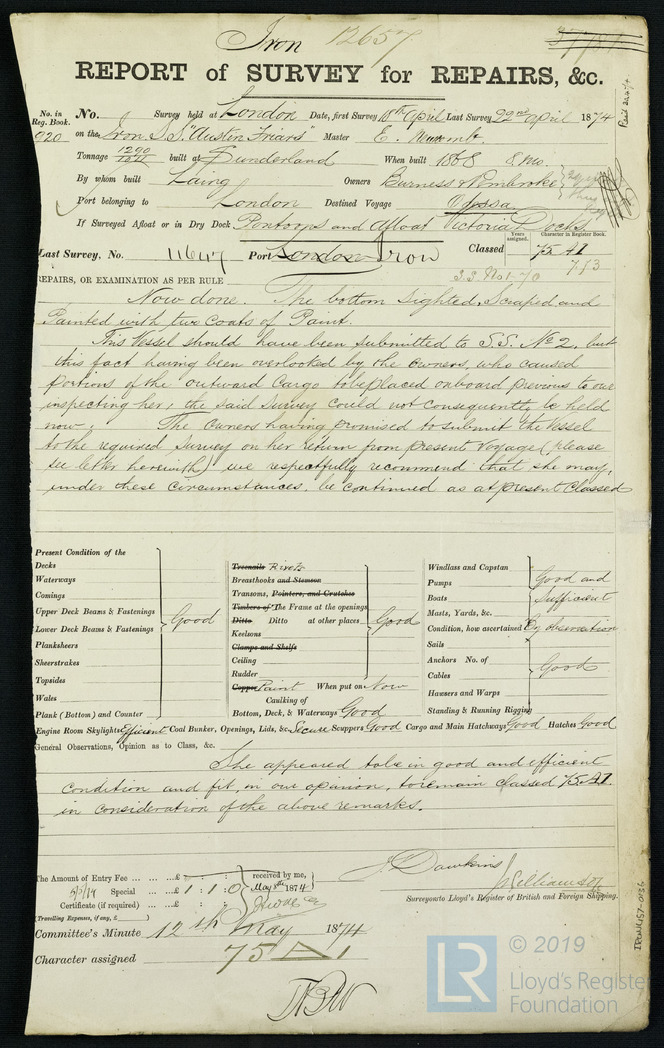 Iron 12657
REPORT of SURVEY for REPAIRS, &c.
No. in Reg. Book. No. Survey held at London Date, first Survey 10th April Last Survey 22nd April 1874
920 on the Iron S.S. "Austin Friars" Master E. Newcomb.
Tonnage 1290 built at Sunderland When built 1868 8. mo.
By whom built Laing Owners Burness & Pembroke
Port belonging to London Destined Voyage Odessa
If Surveyed Afloat or in Dry Dock Pontoons and Afloat Victoria Docks.
Years assigned. Character in Register Book.
Last Survey, No. 11647 Port London Iron Classed 75 A1
S.S. No 1-70 7.73
REPAIRS, OR EXAMINATION AS PER RULE
Now done. The bottom sighted, scraped and
Painted with two coats of Paint.
This Vessel should have been submitted to S.S. No 2, but
this fact having been overlooked by the owners, who caused
portions of the outward cargo to be placed onboard previous to our
inspecting her; the said survey could not consequently be held
now. The owners having promised to submit the Vessel
to the required survey on her return from present voyage (please
see letter herewith) we respectfully recommend that she may,
under these circumstances, be continued as at present Classed
Present Condition of the
Decks
Waterways
Comings
Upper Deck Beams & Fastenings Good
Lower Deck Beams & Fastenings
Planksheers
Sheerstrakes
Topsides
Wales
Plank (Bottom) and Counter
Treenails Rivets
Breasthooks and Stemson
Transoms, Pointers, and Crutches
Timbers of The Frame at the openings
Ditto Ditto at other places Good
Keelsons
Clamps and Shelfs
Ceiling
Rudder
Copper Paint When put on Now
Caulking of
Bottom, Deck, & Waterways Good
Windlass and Capstan
Pumps Good and
Boats Sufficient
Masts, Yards, &c.
Condition, how ascertained By observation
Sails
Anchors No. of Good
Cables
Hawsers and Warps
Standing & Running Rigging
Engine Room Skylights Efficient Coal Bunker, Openings, Lids, &c. Secure Scuppers Good Cargo and Main Hatchways Good Hatches Good
General Observations, Opinion as to Class, &c.
She appeared to be in good and efficient
condition and fit, in our opinion, to remain classed 75 A1
in consideration of the above remarks.
The Amount of Entry Fee ... ... ...£ : : received by me,
5/5/74 Special ... ...£ 1 : 1 : 0 May 8th 1874
Certificate (if required) ... ...£ : :
(Travelling Expenses, if any, £ )
J. Dawkins
Williamson
Surveyors to Lloyd's Register of British and Foreign Shipping.
Committee's Minute 12th May 1874
Character assigned 75 A1
IRON457-0136
LR
© 2019
Lloyd's Register
Foundation